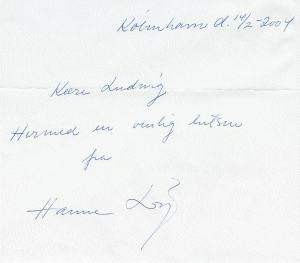 København d. 14/2-2004
Kære Ludwig
Hermed en venlig hilsen
fra
Hanne